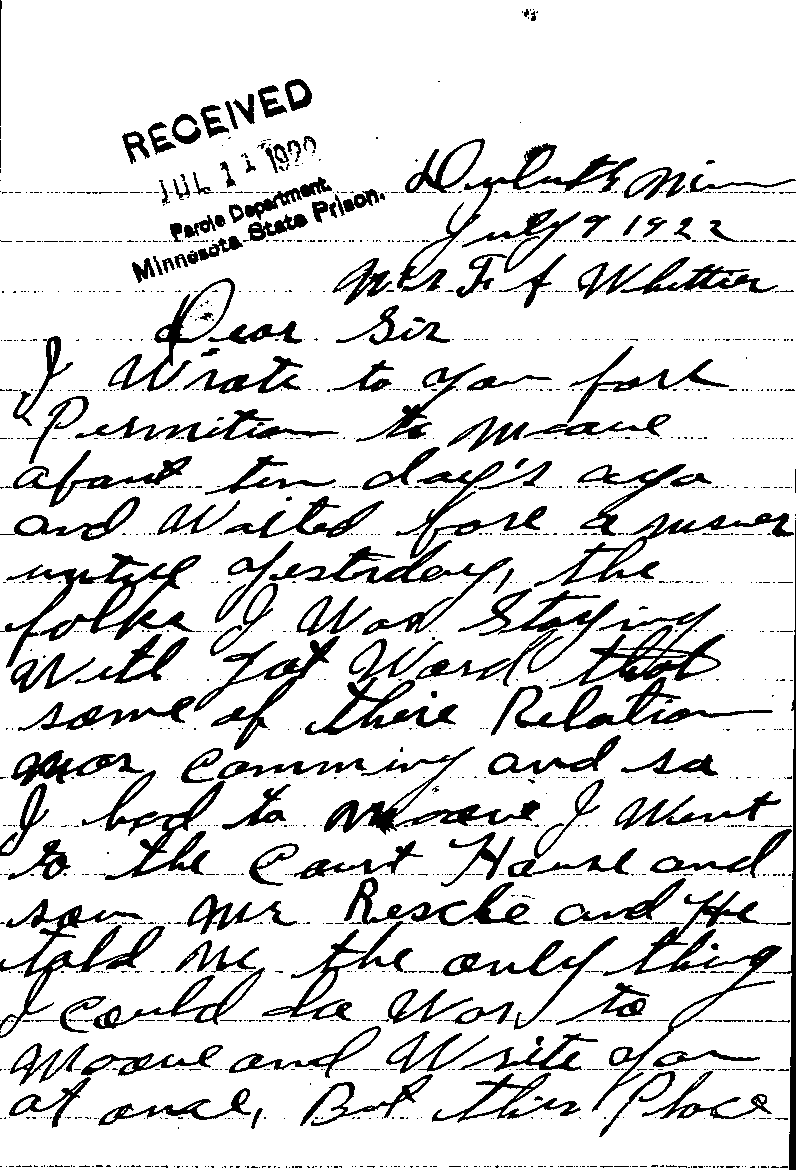 RECEIVED
JUL 11 1922
Parole Department.
Minnesota State Prison.
Duluth Minn
July 9 1922
Mr F A Whittier
Dear Sir
I Wrote to you fore
Permition to Moove
about ten day's ago
and Waited fore answer
untill yesterday, the
folks I Was Staying
With got Word that
some of there Relation
Was comming and so
I had to Moove I Went
to the Court House and
saw Mr Resche and He
told me the only thing
I could doe Was, to
Moove and Write you
at once, But this Place